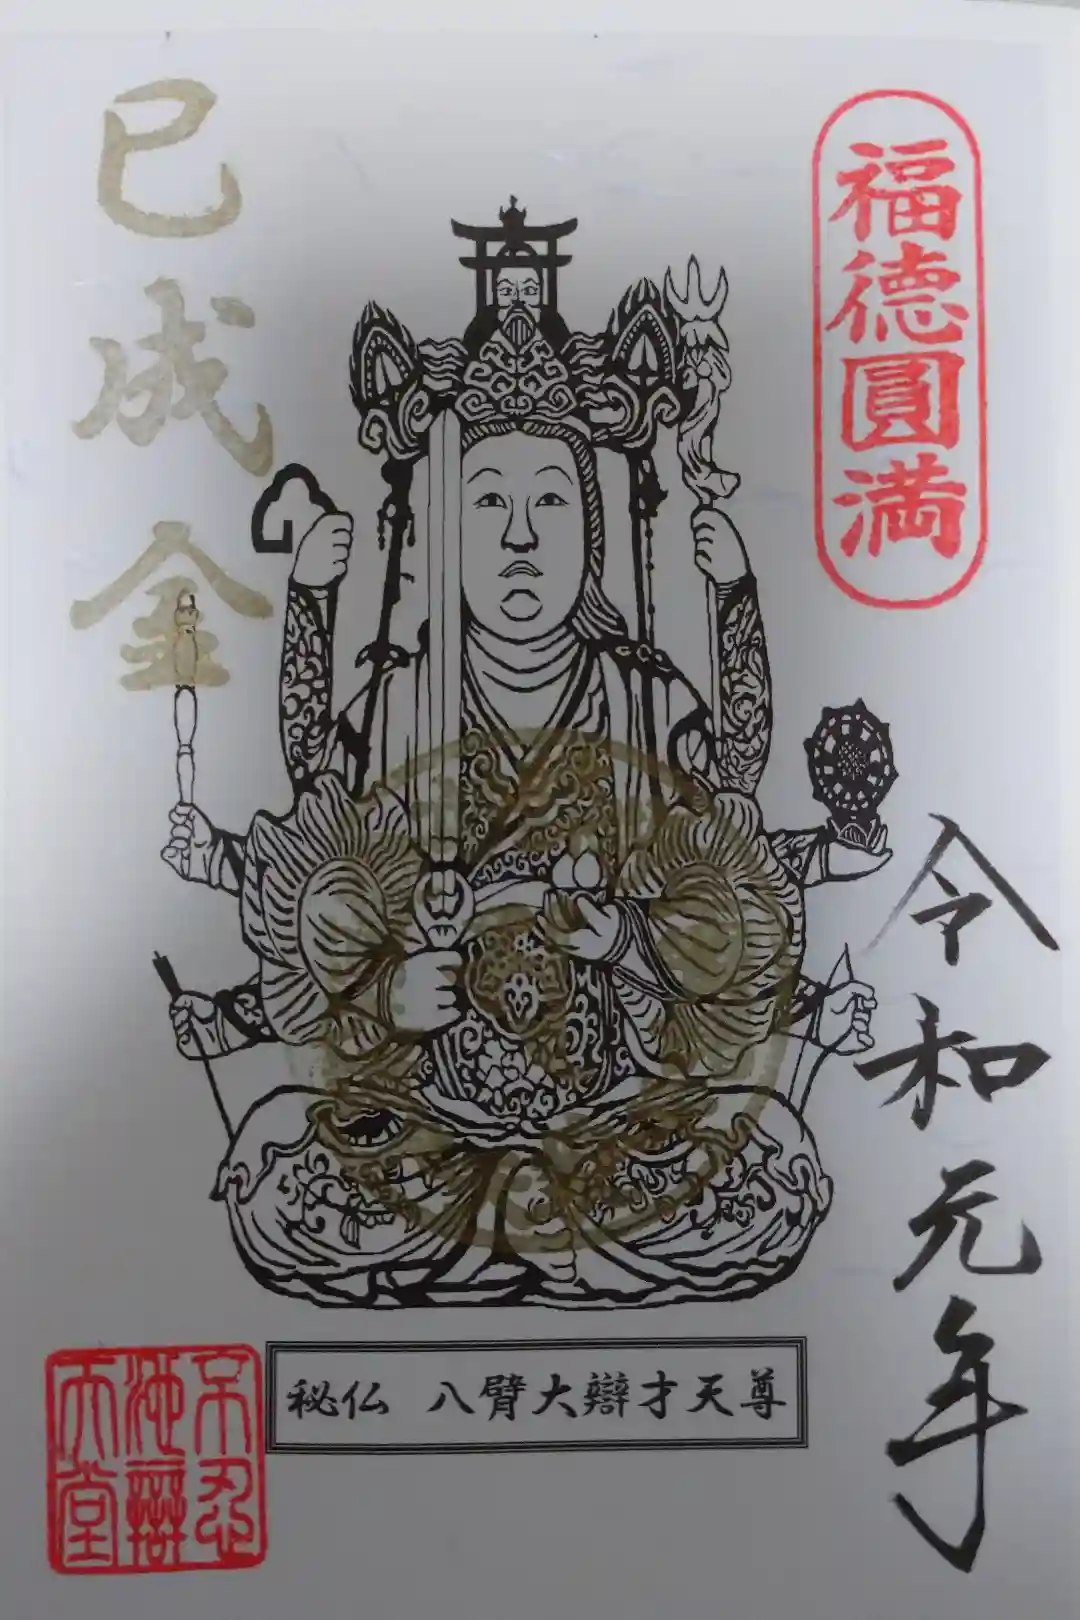 福徳圓満
令和元年
巳成金
秘仏 八臂大辯才天尊
不忍
池辯
天堂